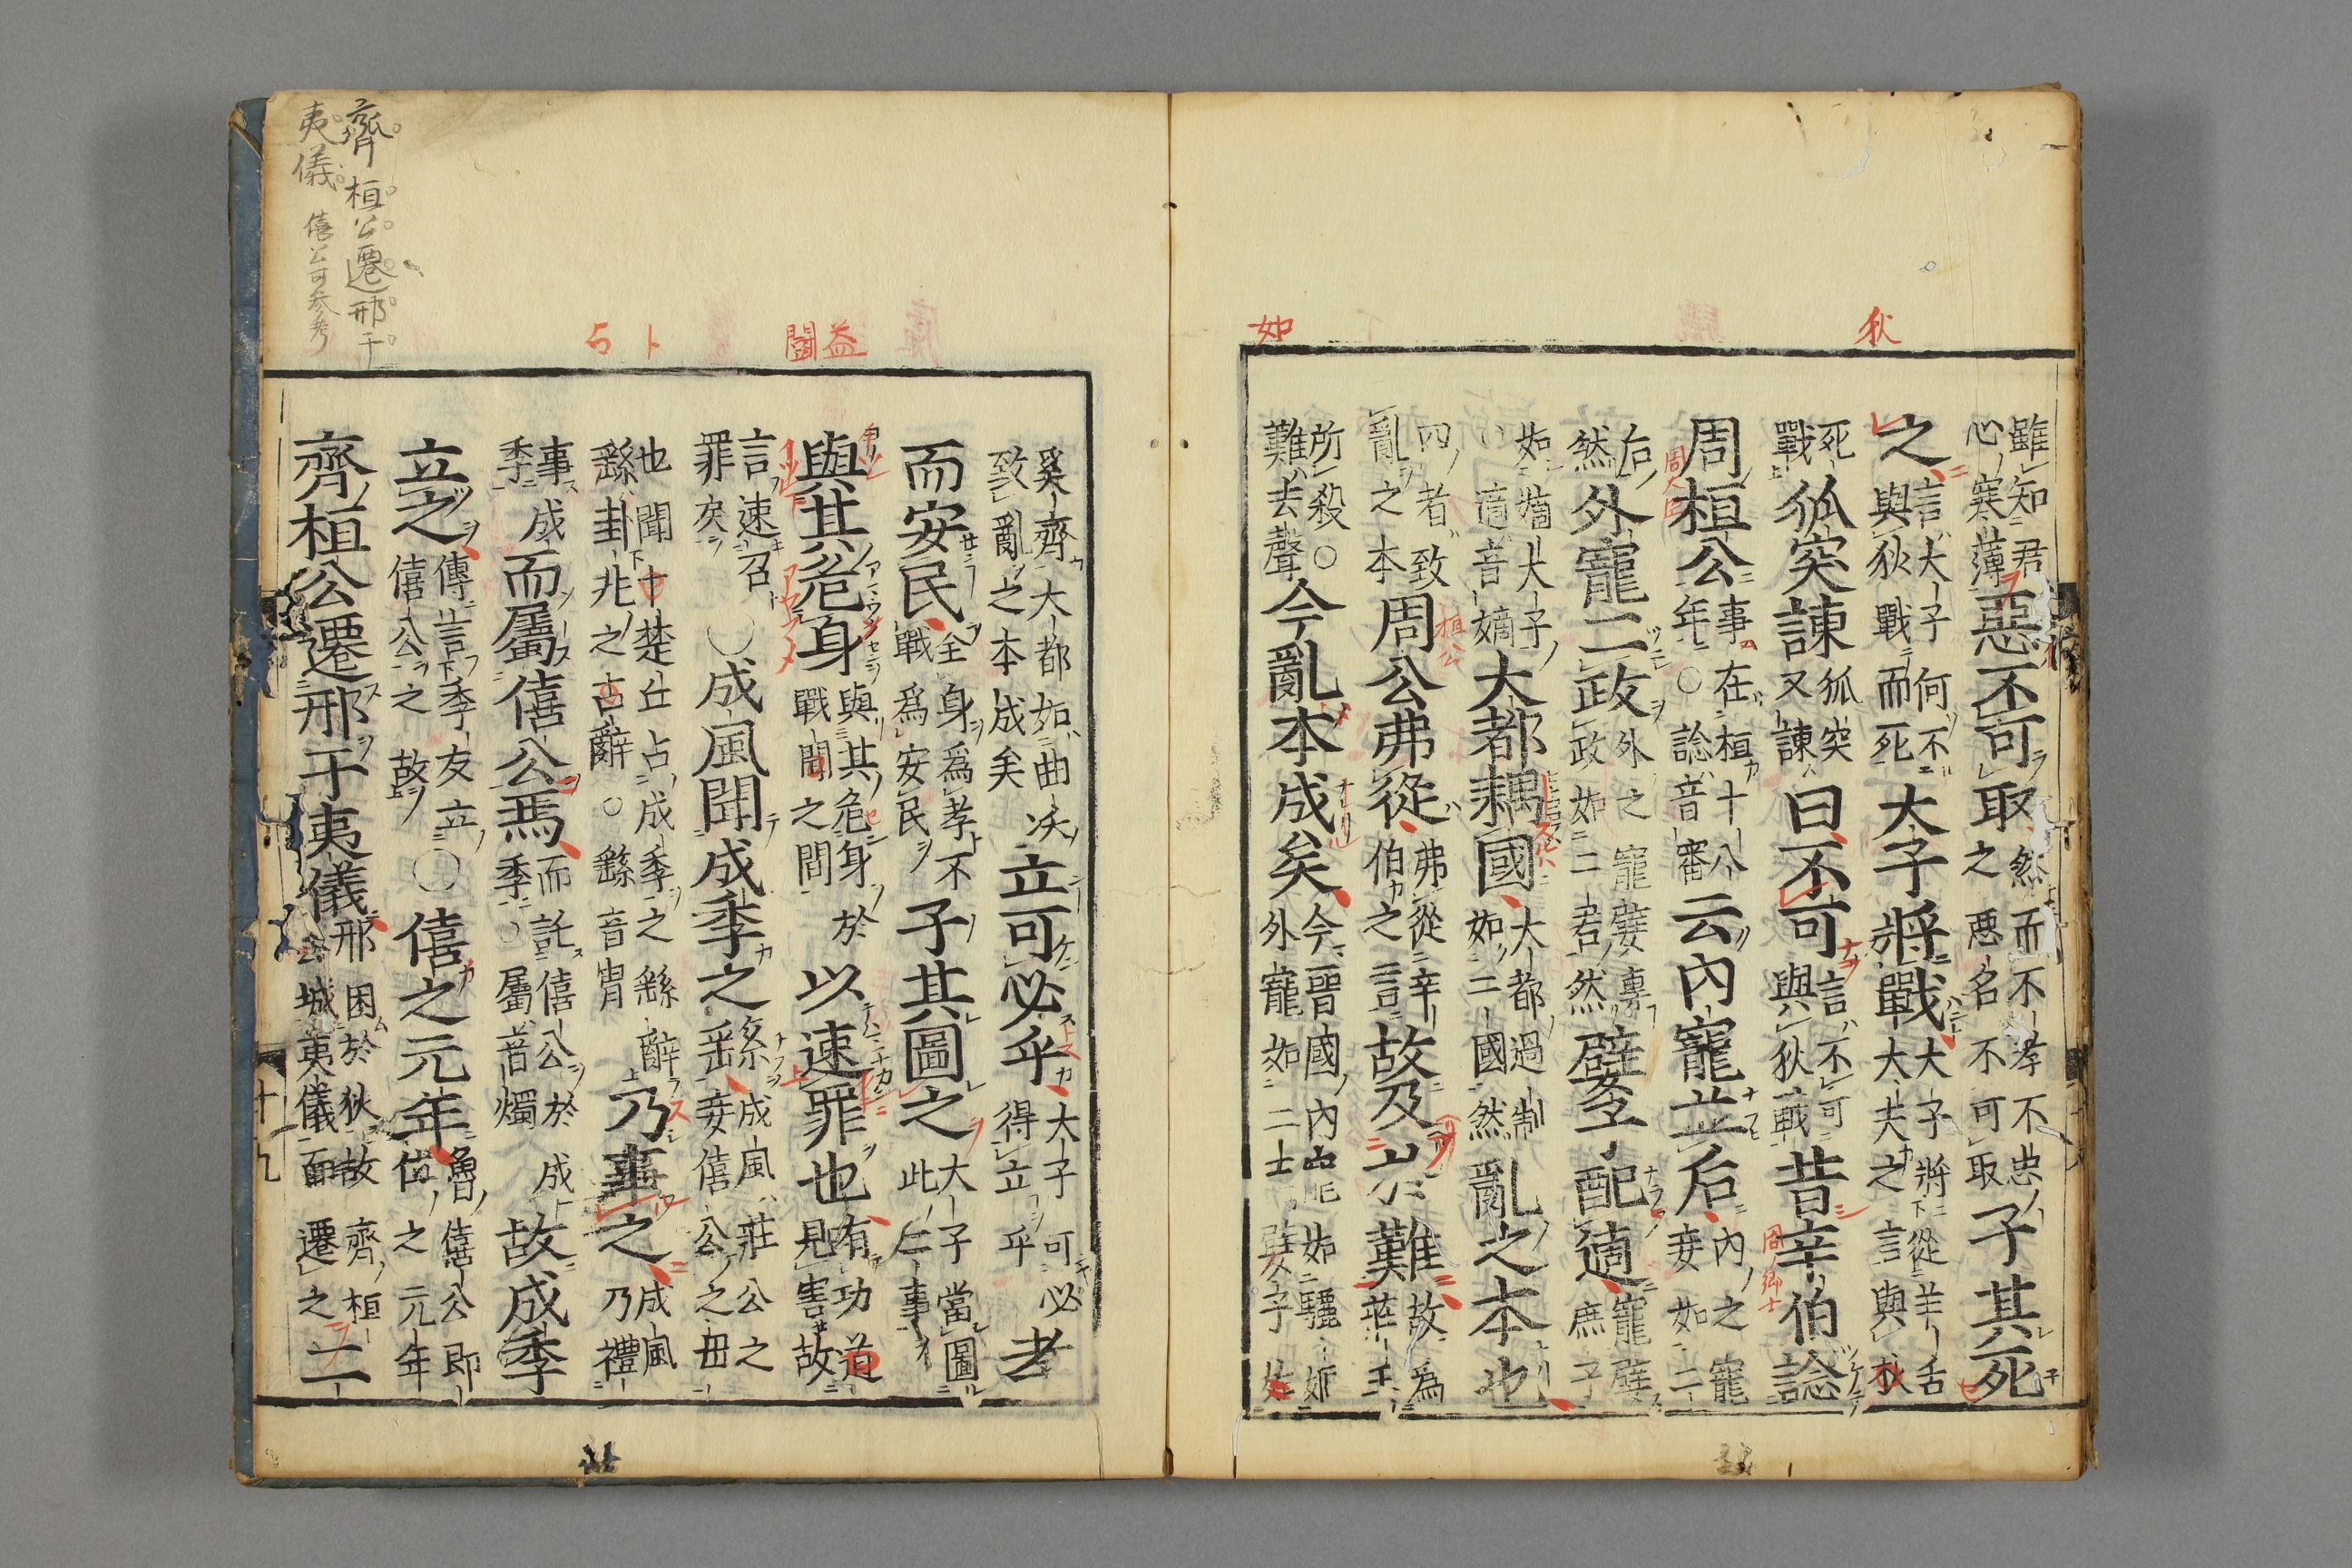 狄
如
雖知君
心寒薄
惡不可取
然而不孝不忠
之惡名不可取
子其死
之
言大子何不
與狄戰而死
大子將戰
大子將從羊舌
大夫之言與狄
死
戰
狐突諫
狐突
又諫
曰不可
言不可
與狄戰
昔辛伯諗
周桓公
事在桓十八
年○諗音審
云內寵並后
內之寵
妾如二
后
然
外寵二政
外之寵嬖專
政如二君然
嬖子配適
寵嬖
庶子
如嫡大子
○適音嫡
大都耦國
大都過制
如二國然
亂之本也
四者致
亂之本
周公弗從
弗從辛
伯之言
故及
難
故為
所殺○
難去聲
今亂本成矣
今晉國內
外寵如二士
如驪姬
嬖子
益
闘
卜
奚齊大都如曲沃
致亂之本成矣
立可必乎
大子可必
得立乎
孝
而安民
全身為孝不
戰為安民
子其圖之
大子當圖
此仁事
與其危身
與其危身於
戰鬪之間
以速罪也
有功
見害故
言速召
罪矣
○成風聞成季之繇
成風莊公之
妾僖公之母
也聞卜楚丘占成季之繇辭
繇卦兆之占辭○繇音冑
乃事之
成風
乃禮
事成
季
而屬僖公焉
而託僖公於成
季○屬音燭
故成季
立之
傳言季友立
僖公之故
○僖之元年
魯僖公即
位之元年
齊桓公遷邢于夷儀
邢困於狄故齊桓
城夷儀而遷之
二
十九
齊桓公遷邢于
夷儀 僖公可参考